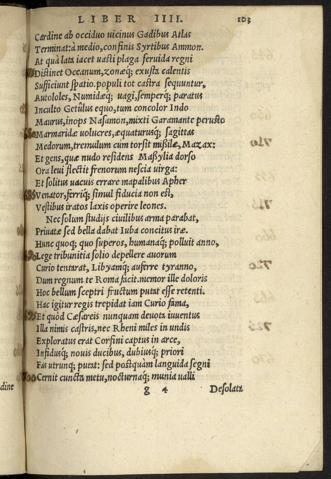 LIBER IIII. 103
Cardine ab occiduo uicinus Gadibus Atlas
Terminat: a medio, confinis Syrtibus Ammon.
At quà lata iacet uasti plaga feruida regni
Distinet Oceanum, zonæq; exusta calentis
Sufficiunt spatio. populi tot castra sequuntur,
Autololes, Numidæq; uagi, semperq; paratus
Inculto Getulus equo, tum concolor Indo
Maurus, inops Nasamon, mixti Garamante perusto
Marmaridæ uolucres, æquaturusq; sagittas
Medorum, tremulum cum torsit missile, Mazax:
Et gens, quæ nudo residens Massylia dorso
Ora leui flectit frenorum nescia uirga:
Et solitus uacuis errare mapalibus Apher
Venator, ferriq; simul fiducia non est,
Vestibus iratos laxis operire leones.
Nec solum studijs ciuilibus arma parabat,
Priuatæ sed bella dabat Iuba concitus iræ.
Hunc quoq; quo superos, humanaq; polluit anno,
Lege tribunitia solio depellere auorum
Curio tentarat, Libyamq; auferre tyranno,
Dum regnum te Roma facit. memor ille doloris
Hoc bellum sceptri fructum putat esse retenti.
Hac igitur regis trepidat iam Curio fama,
Et quòd Cæsareis nunquam deuota iuuentus
Illa nimis castris, nec Rheni miles in undis
Exploratus erat Corfini captus in arce,
Infidusq; nouis ducibus, dubiusq; priori
Fas utrunq; putat: sed postquàm languida segni
Cernit cuncta metu, nocturnaq; munia ualli
g 4 Desolata
dine